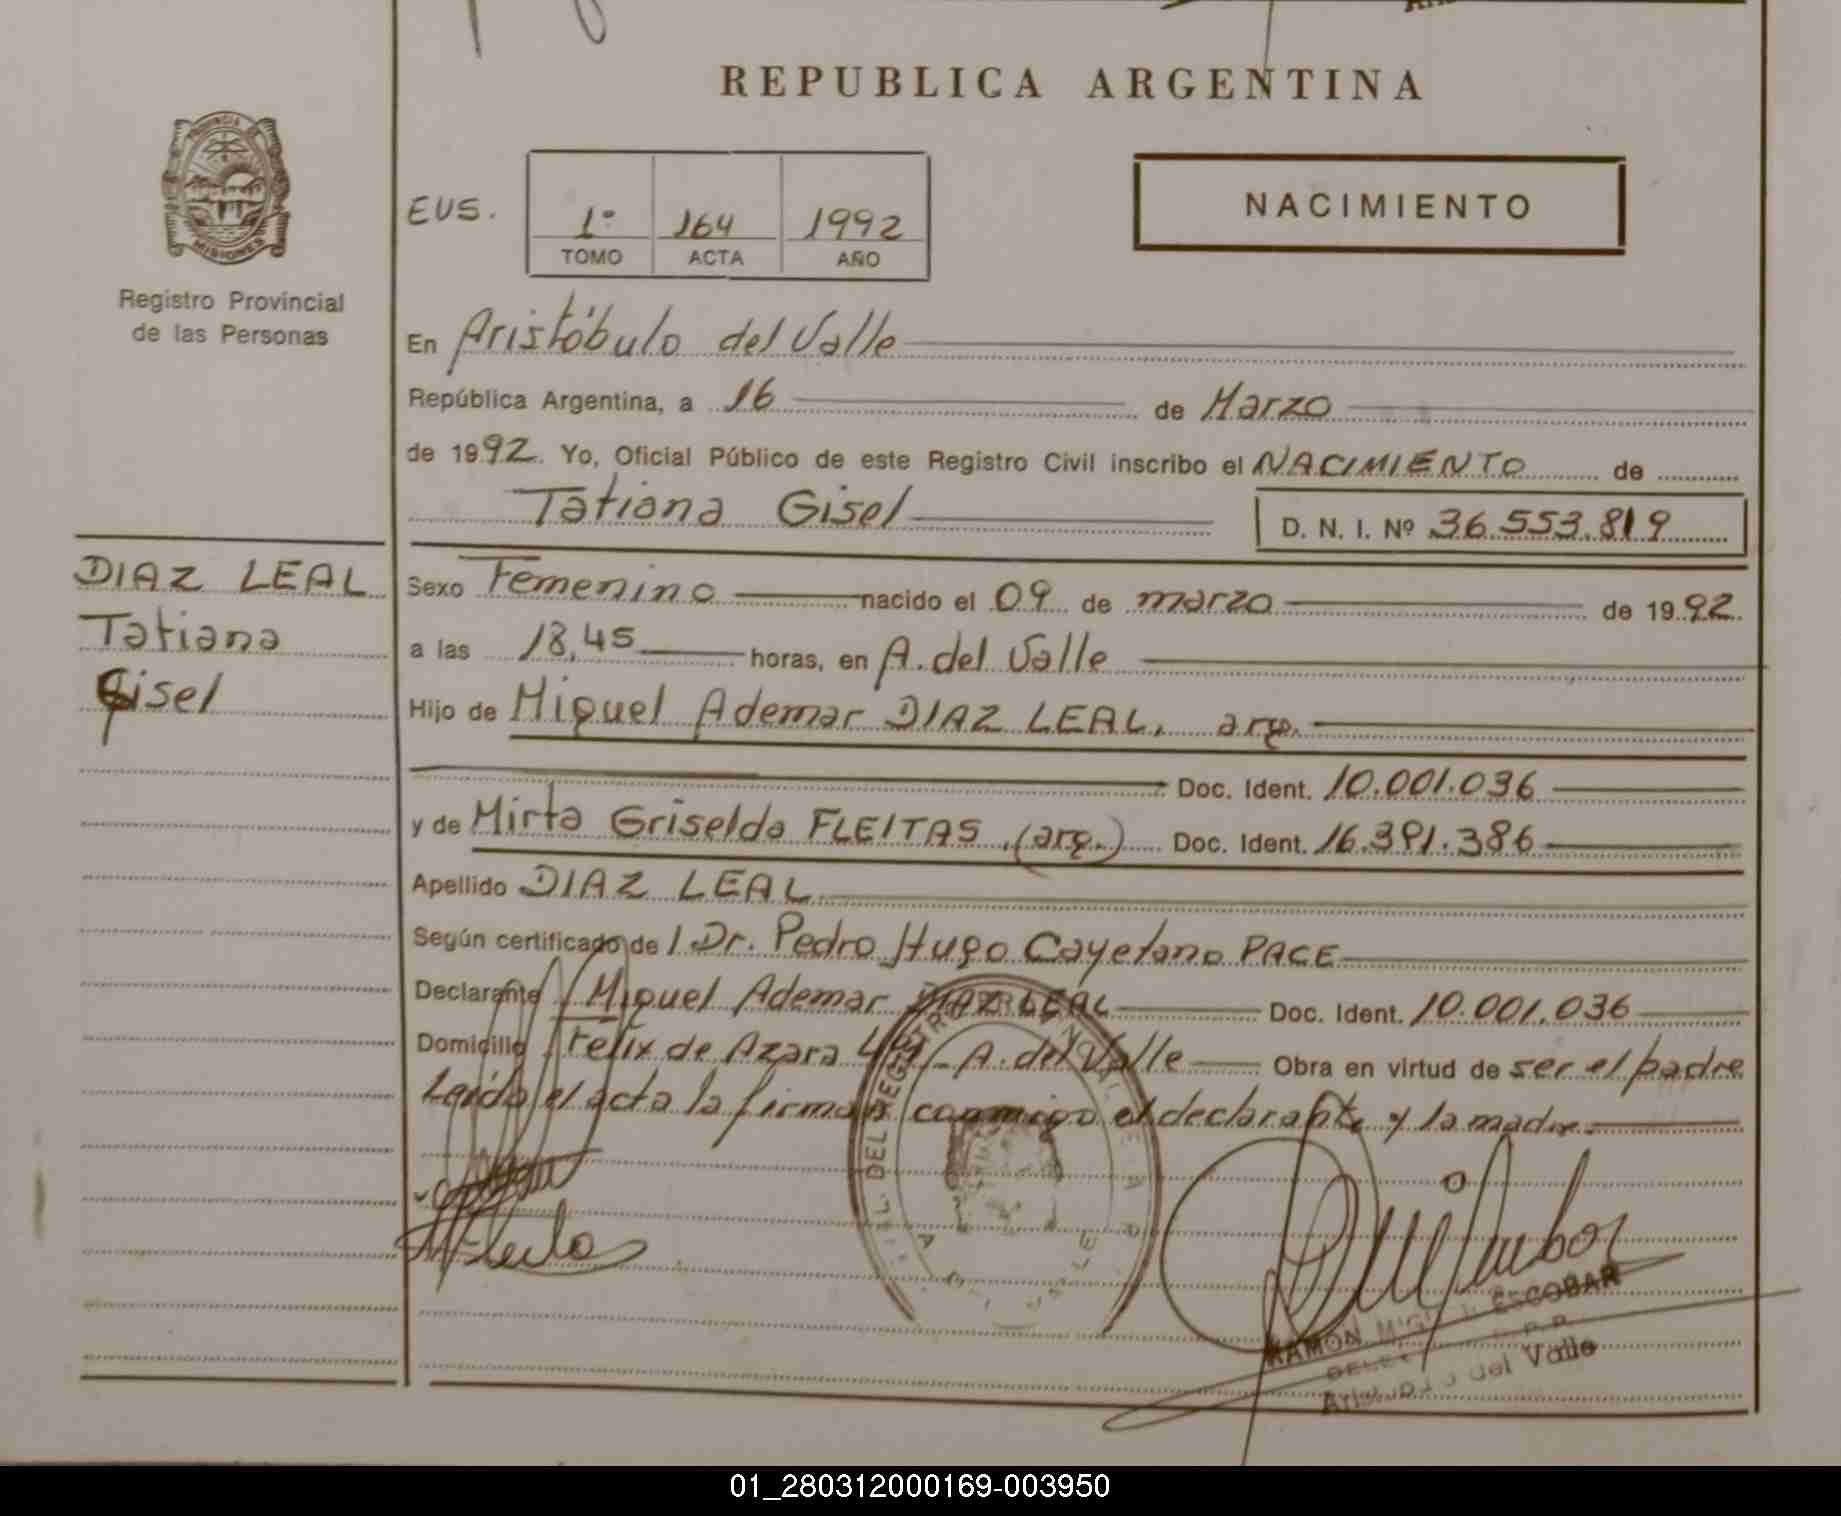 REPUBLICA ARGENTINA
PROVINCIA DE
MISIONES
Registro Provincial
de las Personas
EUS.
1º 164 1992
TOMO ACTA AÑO
NACIMIENTO
En Aristóbulo del Valle
República Argentina, a 16 de Marzo
de 1992. Yo, Oficial Público de este Registro Civil inscribo el NACIMIENTO de
Tatiana Gisel D. N. I. Nº 36.553.819
DIAZ LEAL
Tatiana
Gisel
Sexo Femenino nacido el 09 de marzo de 1992.
a las 18,45 horas, en A. del Valle
Hijo de Miguel Ademar DIAZ LEAL, arg.
Doc. Ident. 10.001.036
y de Mirta Griselda FLEITAS, (arg.) Doc. Ident. 16.391.386
Apellido DIAZ LEAL
Según certificado de l Dr. Pedro Hugo Cayetano PACE
Declarante Miguel Ademar DIAZ LEAL Doc. Ident. 10.001.036
Domicilio Felix de Azara - A. del Valle Obra en virtud de ser el padre
Leída el acta la firman conmigo el declarante y la madre.
RAMON MIGUEL ESCOBAR
del Valle
01_280312000169-003950